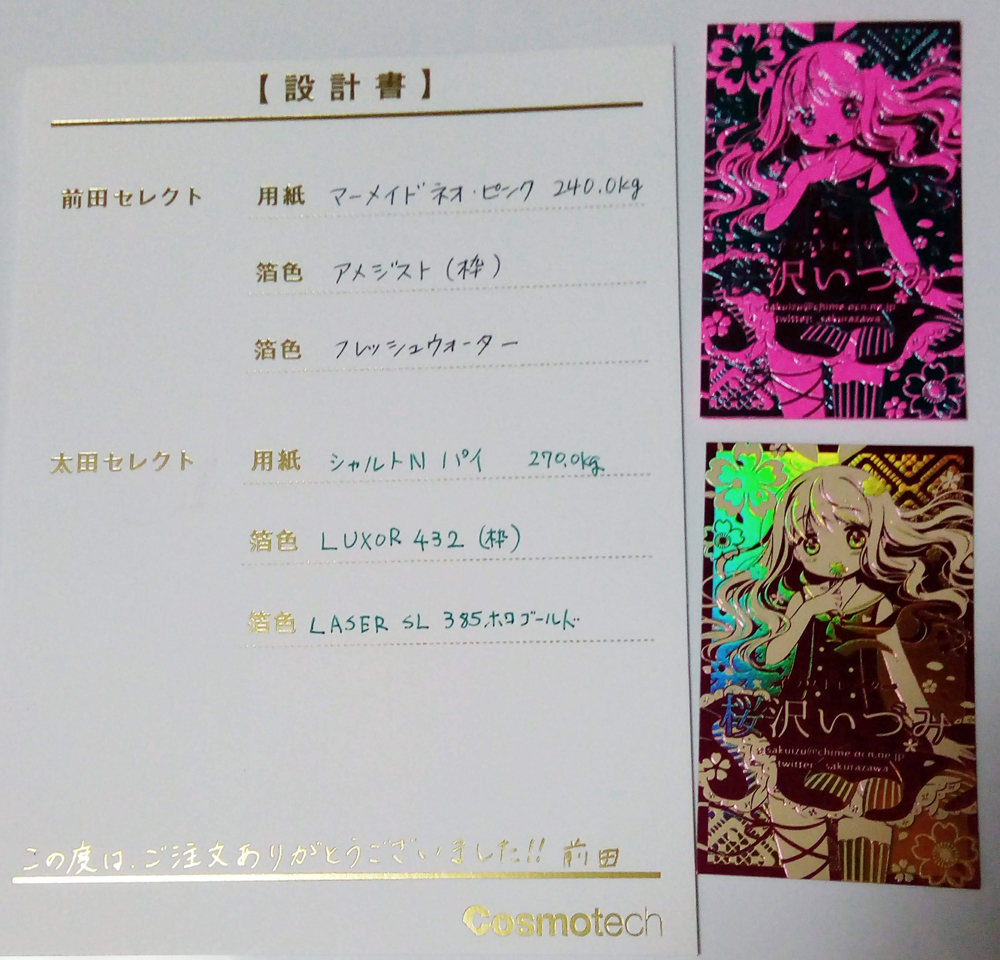 【設計書】
前田セレクト 用紙 マーメイドネオ・ピンク 240.0kg
箔色 アメジスト(枠)
箔色 フレッシュウォーター
太田セレクト 用紙 シャルトN パイ 270.0kg
箔色 LUXOR 432 (枠)
箔色 LASER SL 385,ホロゴールド
この度は、ご注文ありがとうございました!! 前田
Cosmotech
沢いづみ
sakuizu@chime.ocn.ne.jp
twitter sakurazawa
桜沢いづみ
sakuizu@chime.ocn.ne.jp
twitter sakurazawa